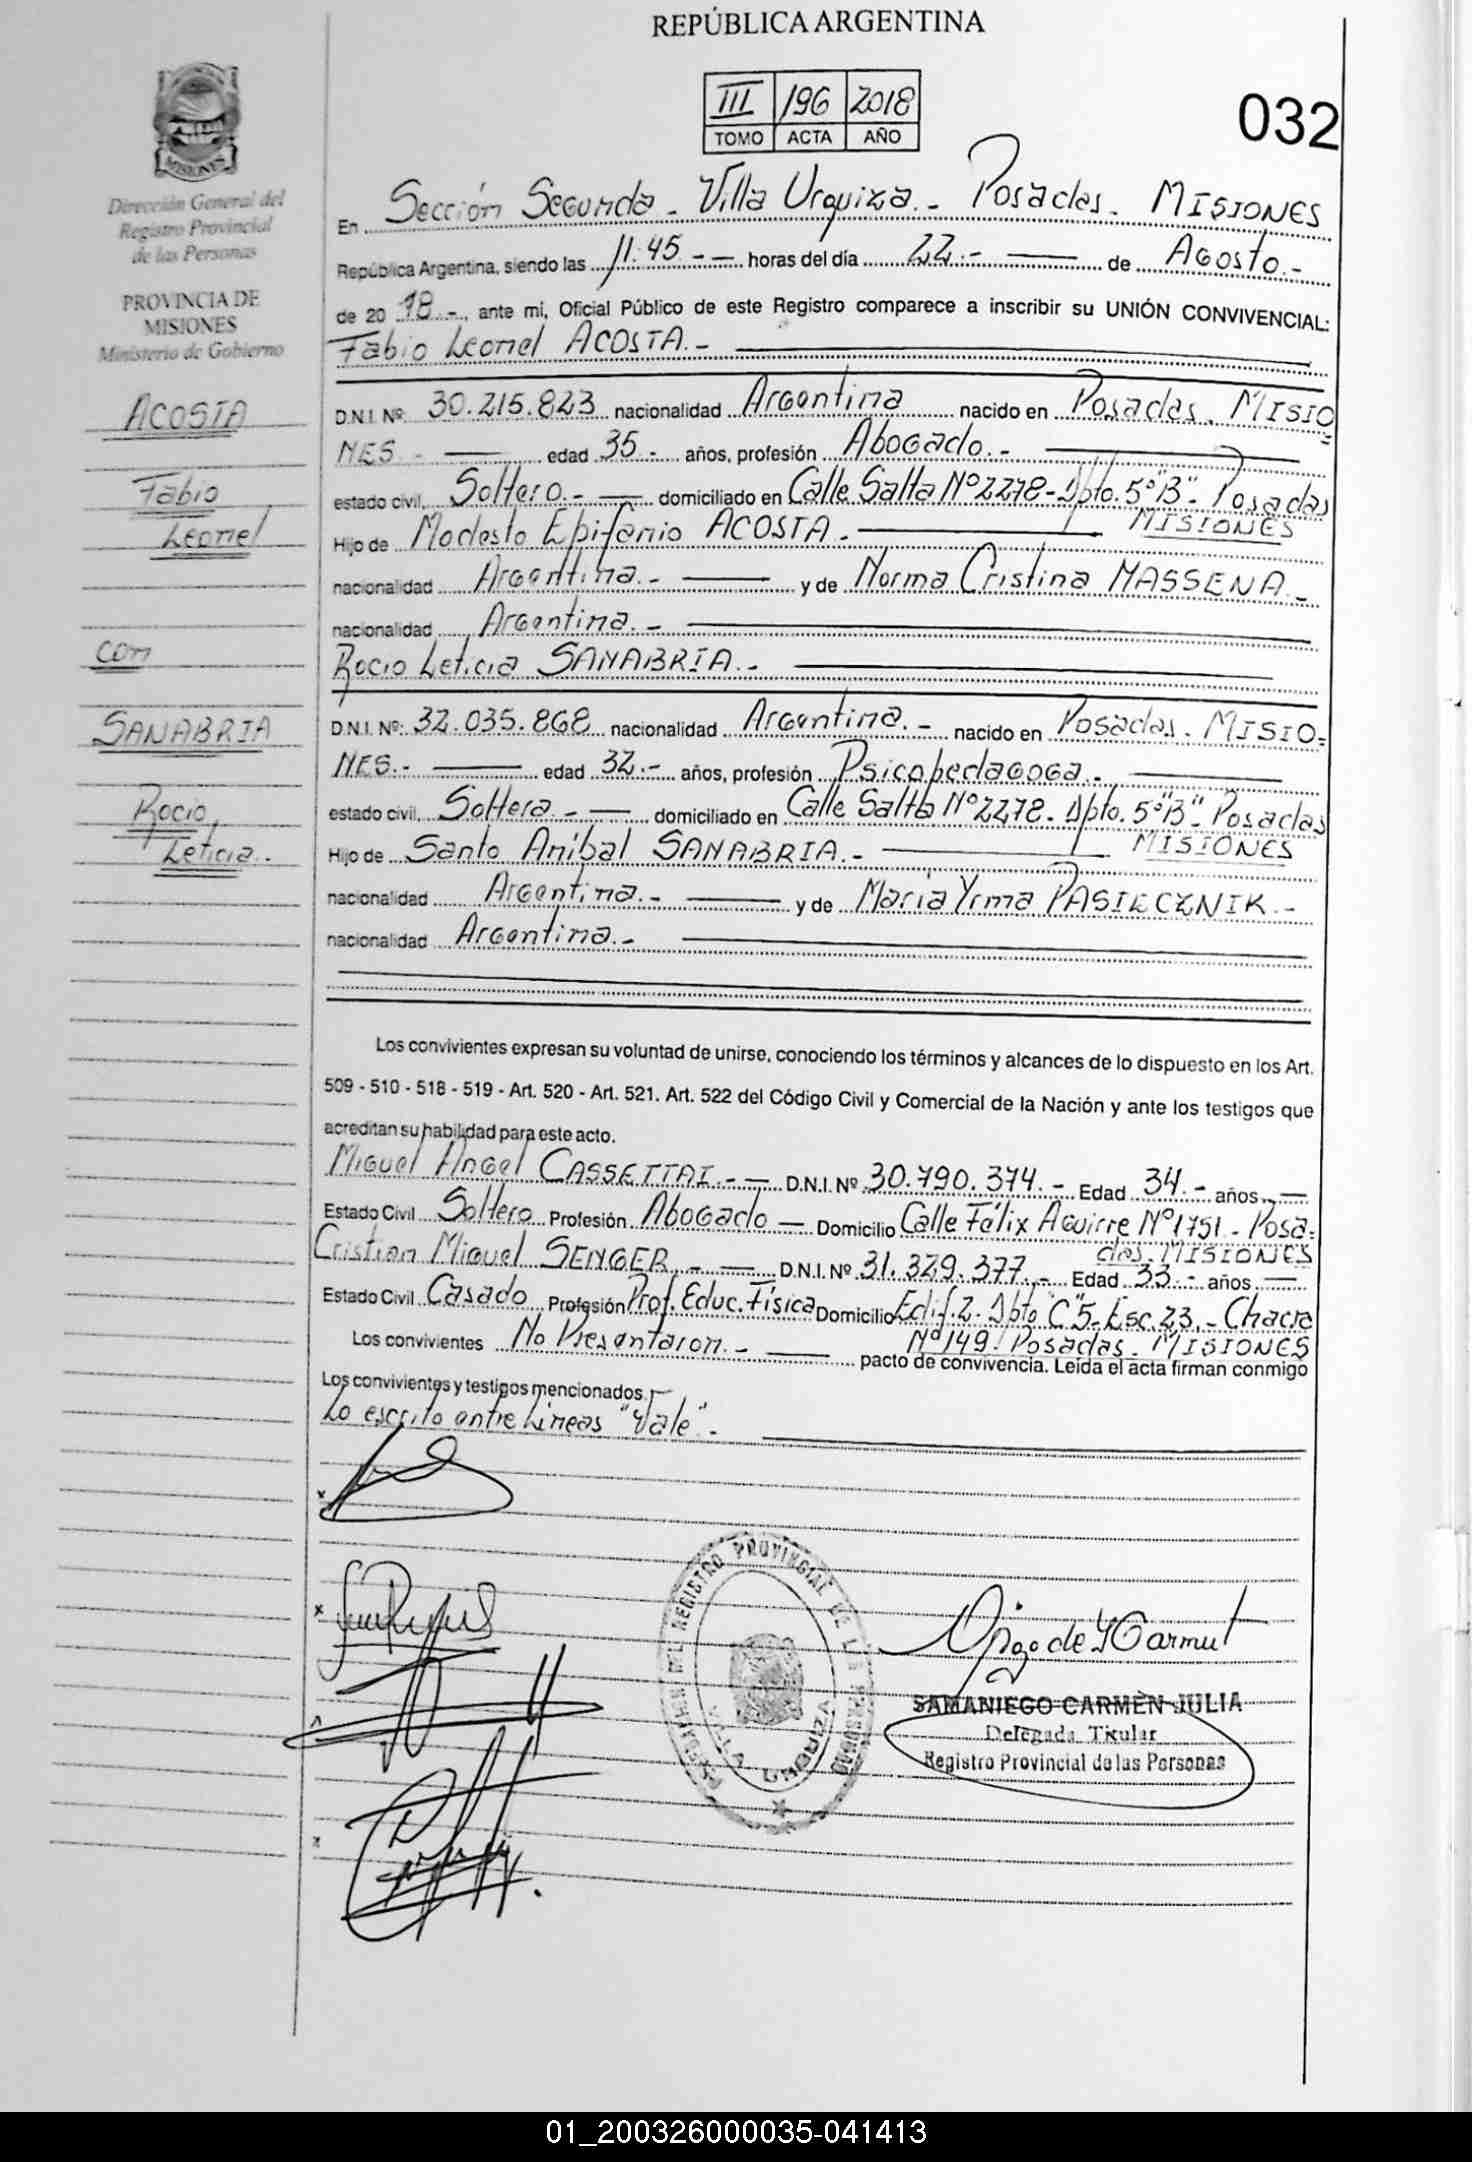 REPÚBLICA ARGENTINA
III 196 2018
TOMO ACTA AÑO
032
MISIONES
Dirección General del
Registro Provincial
de las Personas
PROVINCIA DE
MISIONES
Ministerio de Gobierno
ACOSTA
Fabio
Leonel
con
SANABRIA
Rocio
Leticia.-
En Sección Segunda - Villa Urquiza.- Posadas - MISIONES
República Argentina, siendo las 11:45.-— horas del día 22.- — de Agosto.-
de 20 18.-, ante mi, Oficial Público de este Registro comparece a inscribir su UNIÓN CONVIVENCIAL:
Fabio Leonel ACOSTA.-
D.N.I. Nº 30.215.823 nacionalidad Argentina nacido en Posadas. MISIO
NES.- edad 35.- años, profesión Abogado.-
estado civil, Soltero.- domiciliado en Calle Salta Nº 2278-Dpto. 5º"B"- Posadas
MISIONES
Hijo de Modesto Epifanio ACOSTA.-
nacionalidad Argentina.- y de Norma Cristina MASSENA.-
nacionalidad Argentina.-
Rocio Leticia SANABRIA.-
D.N.I. Nº: 32.035.868 nacionalidad Argentina.- nacido en Posadas. MISIO=
NES.- edad 32.- años, profesión Psicopedagoga.-
estado civil, Soltera.- domiciliado en Calle Salta Nº 2278. Dpto. 5º"B"- Posadas
MISIONES
Hijo de Santo Anibal SANABRIA.-
nacionalidad Argentina.- y de Maria Yrma PASIECZNIK.-
nacionalidad Argentina.-
Los convivientes expresan su voluntad de unirse, conociendo los términos y alcances de lo dispuesto en los Art.
509 - 510 - 518 - 519 - Art. 520 - Art. 521. Art. 522 del Código Civil y Comercial de la Nación y ante los testigos que
acreditan su habilidad para este acto.
Miguel Angel CASSETTAI.-— D.N.I. Nº 30.790.374.- Edad 34.- años,—
Estado Civil Soltero Profesión Abogado — Domicilio Calle Félix Aguirre Nº 1751 - Posa-
das. MISIONES
Cristian Miguel SENGER.-— D.N.I. Nº 31.329.377.- Edad 33.- años,—
Estado Civil Casado Profesión Prof. Educ. Física Domicilio Edif. 2- Dpto "C" 5- Esc. 23.- Chacra
Nº 149. Posadas. MISIONES
Los convivientes No Presentaron.- pacto de convivencia. Leída el acta firman conmigo
Los convivientes y testigos mencionados.
Lo escrito entre Lineas "Vale".-
REGISTRO PROVINCIAL DE LAS PERSONAS
VILLA URQUIZA
SAMANIEGO CARMEN JULIA
Delegada Titular
Registro Provincial de las Personas
01_200326000035-041413